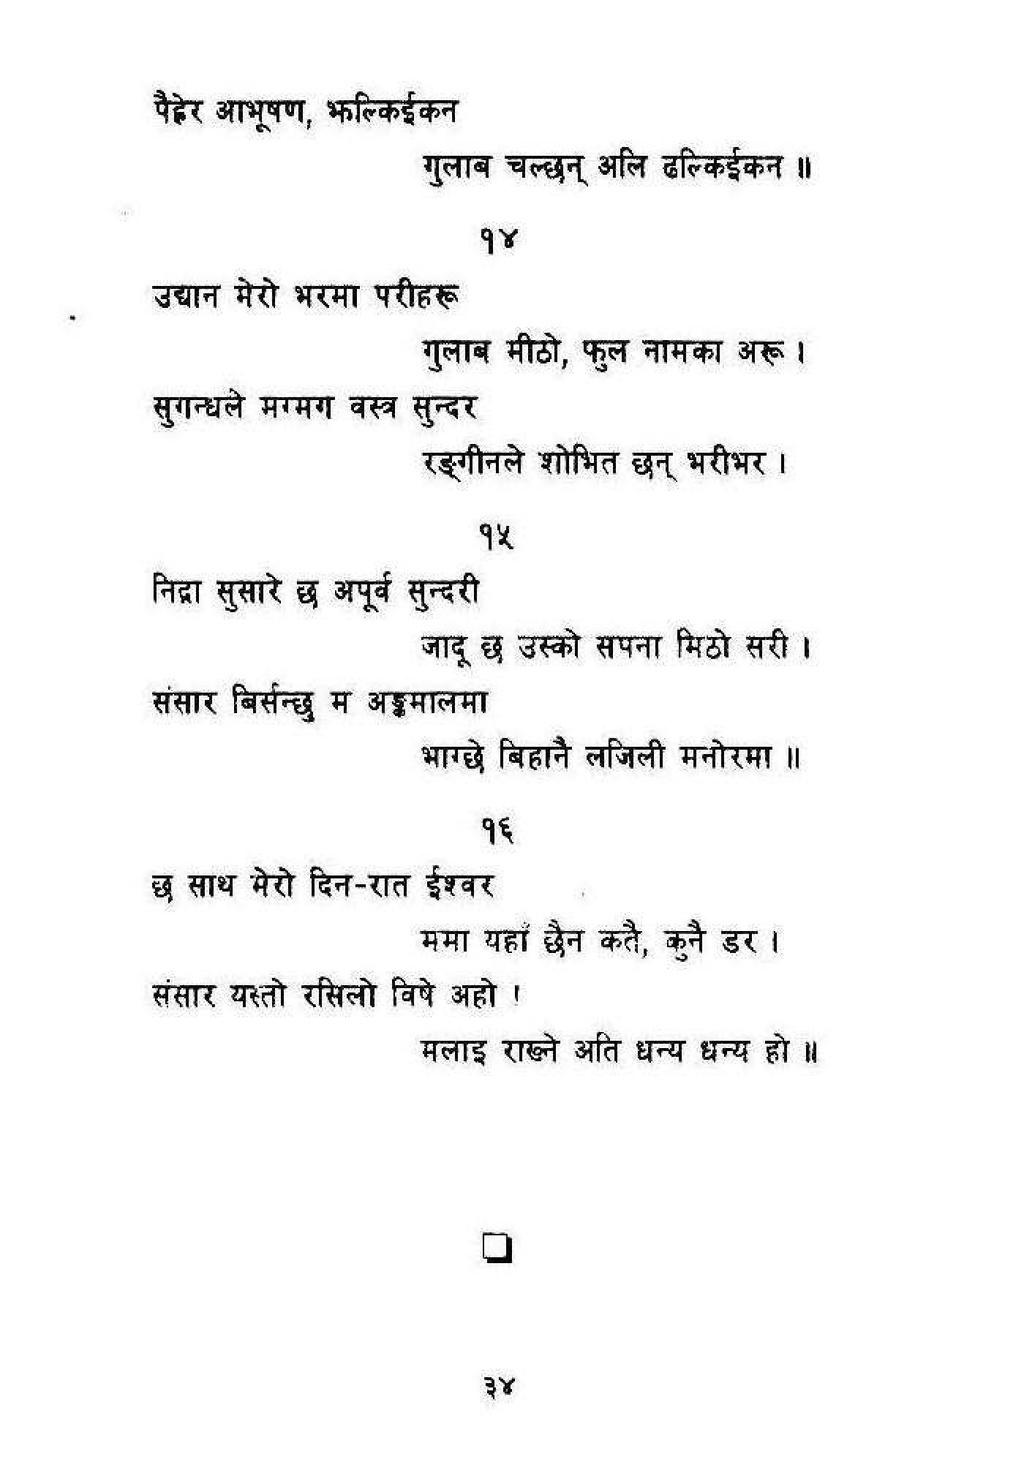 पैह्रेर आभूषण, झल्किईकन
गुलाब चल्छन् अलि ढल्किईकन ॥
१४
उद्यान मेरो भरमा परीहरू
गुलाब मीठो, फुल नामका अरू ।
सुगन्धले मग्मग वस्त्र सुन्दर
रङ्गीनले शोभित छन् भरीभर ।
१५
निद्रा सुसारे छ अपूर्व सुन्दरी
जादू छ उस्को सपना मिठो सरी ।
संसार बिर्सन्छु म अङ्कमालमा
भाग्छे बिहानै लजिली मनोरमा ॥
१६
छ साथ मेरो दिन-रात ईश्वर
ममा यहाँ छैन कतै, कुनै डर ।
संसार यस्तो रसिलो विषे अहो !
मलाइ राख्ने अति धन्य धन्य हो ॥
३४